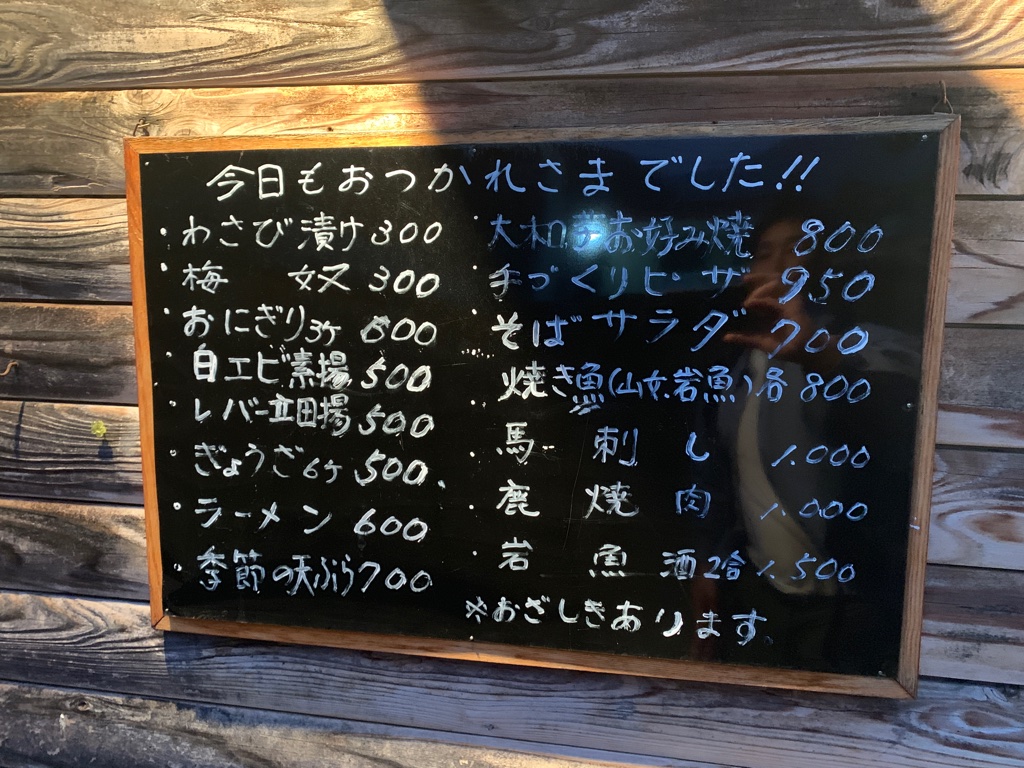 今日もおつかれさまでした!!
・わさび漬け 300
・梅 奴 300
・おにぎり 3ケ 600
・白エビ素揚 500
・レバー立田揚 500
・ぎょうざ 6ケ 500
・ラーメン 600
・季節の天ぷら 700
・大和芋お好み焼 800
・手づくりピザ 950
・そばサラダ 700
・焼き魚(山女.岩魚)各 800
・馬刺し 1.000
・鹿焼肉 1.000
・岩魚酒 2合 1.500
※おざしきあります